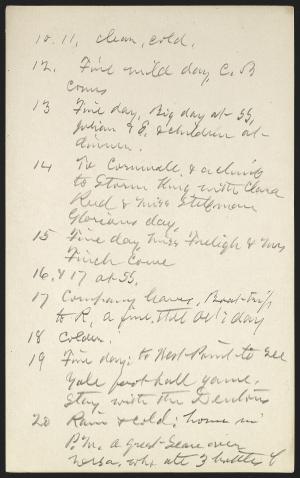 10.11, clear, cold.
12. Fine mild day, C. B
comes
13 Fine day, Big day at SS,
Julian & E. & children at
dinner.
14 To Cornwall, & a climb
to Storm King with Clara
Reed & Miss
Glorious day,
15 Fine day, Miss Freligh & Mrs
Finch come
16, & 17 at SS.
17 Company leaves, Boat-trip
to R, a fine, still Oct. day
18 Colder.
19 Fine day; to West Point to see
Yale foot ball game.
Stay with the Dentons
20 Rain & cold; home in
P.M. a great scare over
who ate 3 bottles of